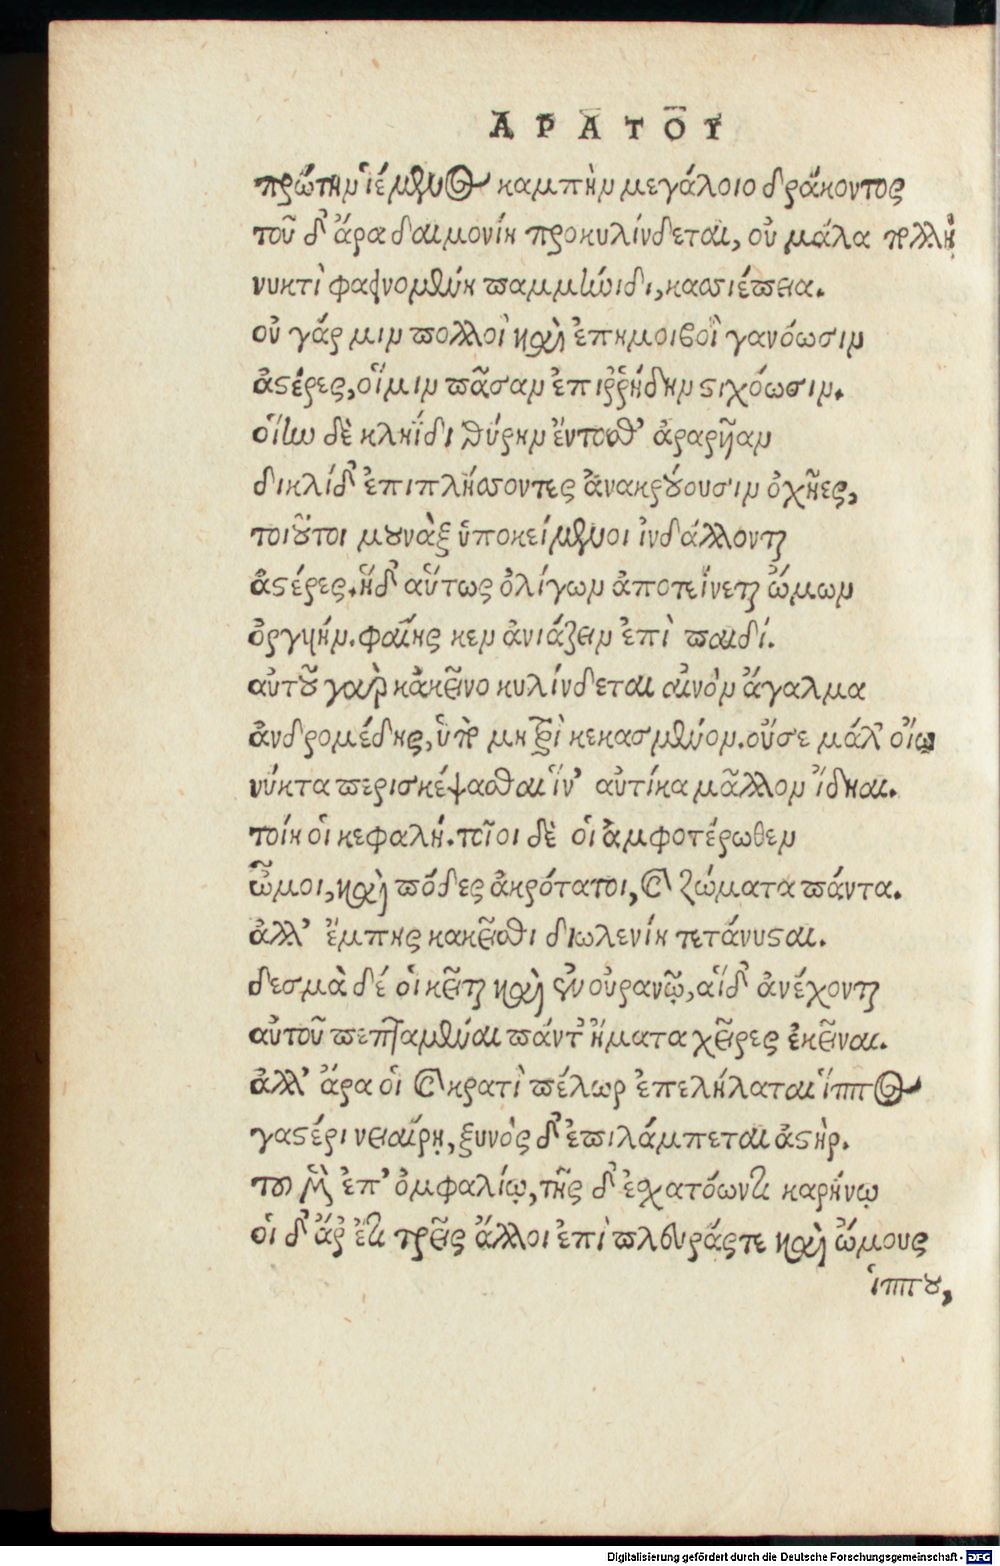 ΑΡΑΤΟΥ
πρώτην ἱέμενος καμπὴν μεγάλοιο δράκοντος
τοῦ δ' ἄρα δαιμονίη προκυλίνδεται, οὐ μάλα πολλῇ
νυκτὶ φαινομένη παμμήνιδι, κασσιέπεια.
οὐ γάρ μιν πολλοὶ καὶ ἐπημοιβοὶ γανόωσιν
ἀστέρες, οἵ μιν πᾶσαν ἐπιῤῥήδην στιχόωσιν.
οἵῳ δὲ κληΐδι θύρην ἔντοσθ' ἀραρῆαν
δικλίδ' ἐπιπλήσσοντες ἀνακρούουσιν ὀχῆες,
τοιοῦτοι μουνὰξ ὑποκείμενοι ἰνδάλλονται
ἀστέρες. ἥδ' αὕτως ὀλίγων ἀποτείνεται ὤμων
ὀργυιήν. φαίης κεν ἀνιάζειν ἐπὶ παιδί.
αὐτοῦ γὰρ κἀκεῖνο κυλίνδεται αἰνὸν ἄγαλμα
ἀνδρομέδης, ὑπὸ μητρὶ κεκασμένον. οὔ σε μάλ' οἴω
νύκτα περισκέψασθαι ἵν' αὐτίκα μᾶλλον ἴδηαι.
τοίη οἱ κεφαλή. τοῖοι δὲ οἱ ἀμφοτέρωθεν
ὦμοι, καὶ πόδες ἀκρότατοι, καὶ ζώματα πάντα.
ἀλλ' ἔμπης κακεῖθι διωλενίη τετάνυσται.
δεσμὰ δέ οἱ κεῖται καὶ ἐν οὐρανῷ, αἵδ' ἀνέχονται
αὐτοῦ πεπταμέναι πάντ' ἤματα χεῖρες ἐκεῖναι.
ἀλλ' ἄρα οἱ καὶ κρατὶ πέλωρ ἐπελήλαται ἵππος
γαστέρι νειαίρῃ, ξυνὸς δ' ἐπιλάμπεται ἀστήρ.
του μὲν ἐπ' ὀμφαλίῳ, τῆς δ' ἐσχατόωντι καρήνῳ
οἱ δ' ἄρ' ἔτι τρεῖς ἄλλοι ἐπὶ πλευράς τε καὶ ὤμους
ἵππου,
Digitalisierung gefördert durch die Deutsche Forschungsgemeinschaft - DFG